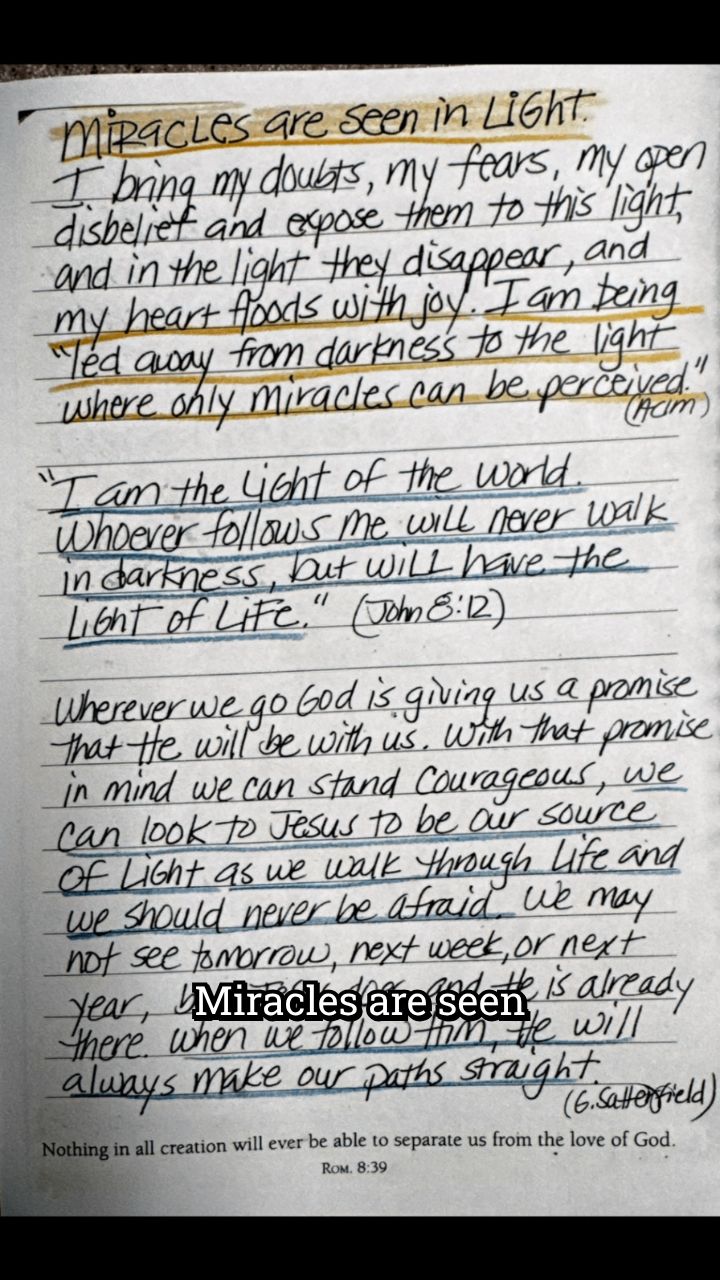 MIRACLES are seen in LiGHT.
I bring my doubts, my fears, my open
disbelief and expose them to this light,
and in the light they disappear, and
my heart floods with joy. I am being
"led away from darkness to the light
where only miracles can be perceived."
(Acim)
"I am the LiGHT of the world.
Whoever follows me will never walk
in darkness, but will have the
LiGHT of LiFe." (John 8:12)
Wherever we go God is giving us a promise
that He will be with us. With that promise
in mind we can stand courageous, we
can look to Jesus to be our source
of LiGHT as we walk through life and
we should never be afraid. We may
not see tomorrow, next week, or next
year, and He is already
Miracles are seen
there. when we follow Him, He will
always make our paths straight.
(G. Satterfield)
Nothing in all creation will ever be able to separate us from the love of God.
ROM. 8:39